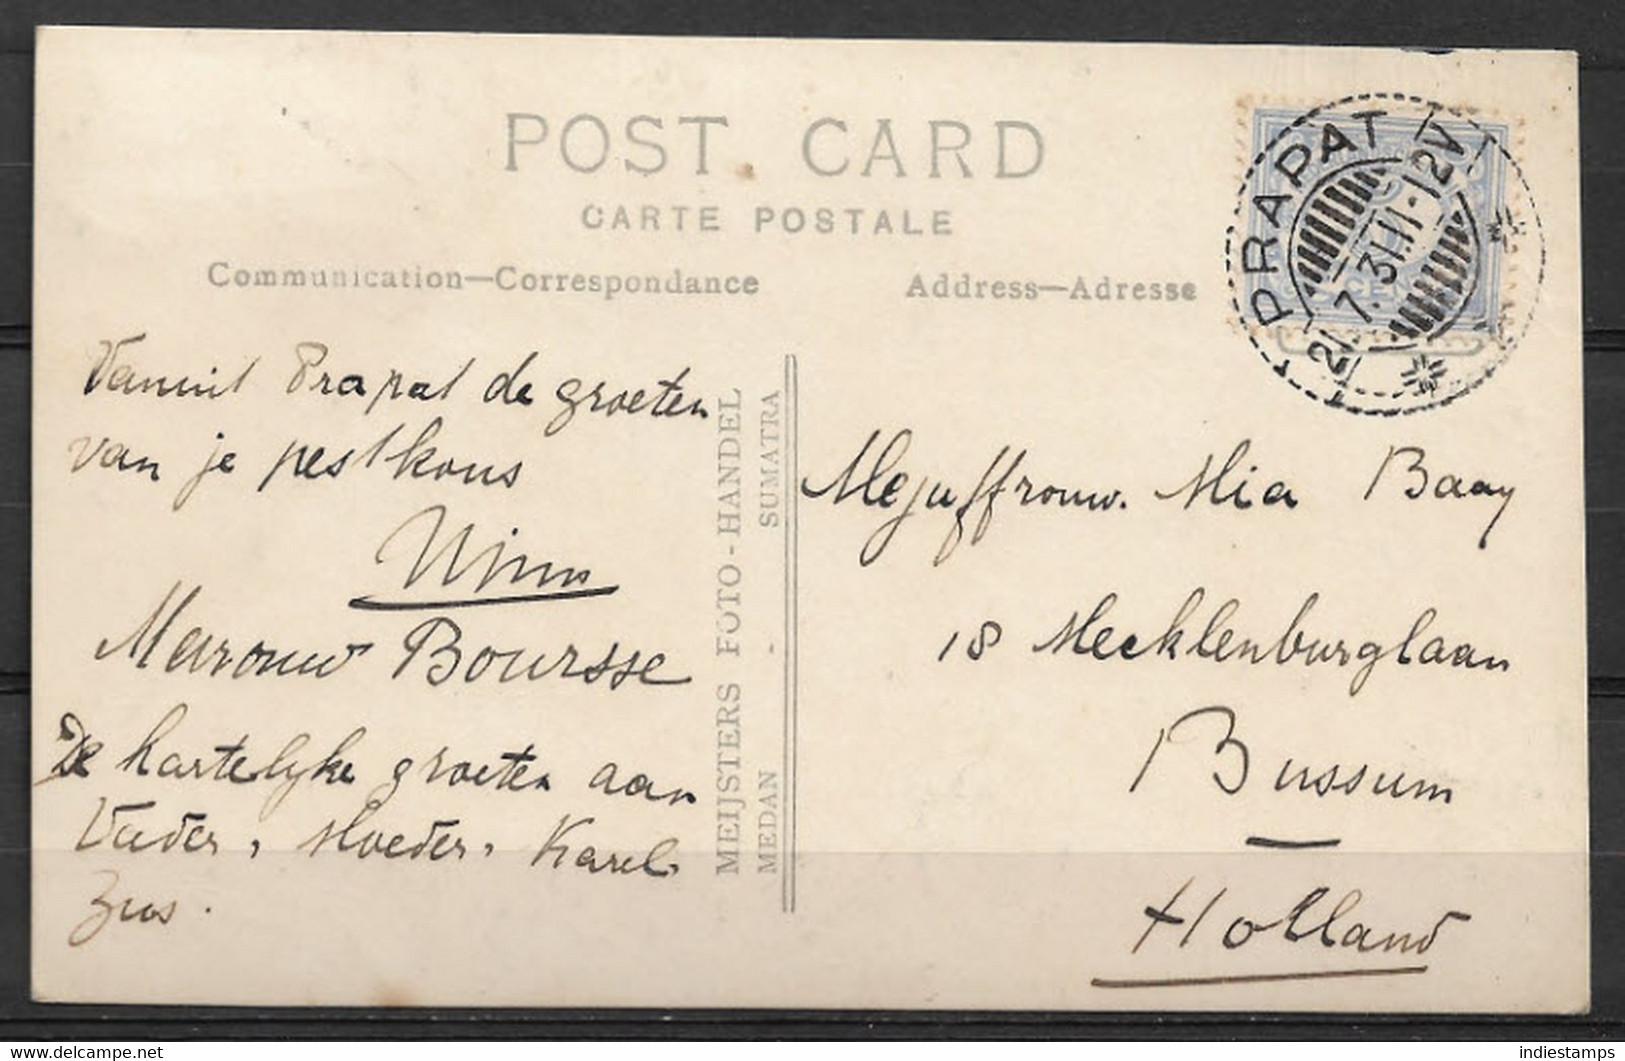 POST CARD
CARTE POSTALE
Communication—Correspondance
Address—Adresse
PRAPAT
21.7.31.11-12V
CENT
Vanuit Prapat de groeten
van je pestkous
Wims
Mevrouw Boursse
De hartelyke groeten aan
Vader, Moeder, Karel
Zus.
MEIJSTERS FOTO-HANDEL
MEDAN - SUMATRA
Mejuffrouw. Mia Baay
18 Mecklenburglaan
Bussum
Holland
https://www.delcampe.net
indiestamps